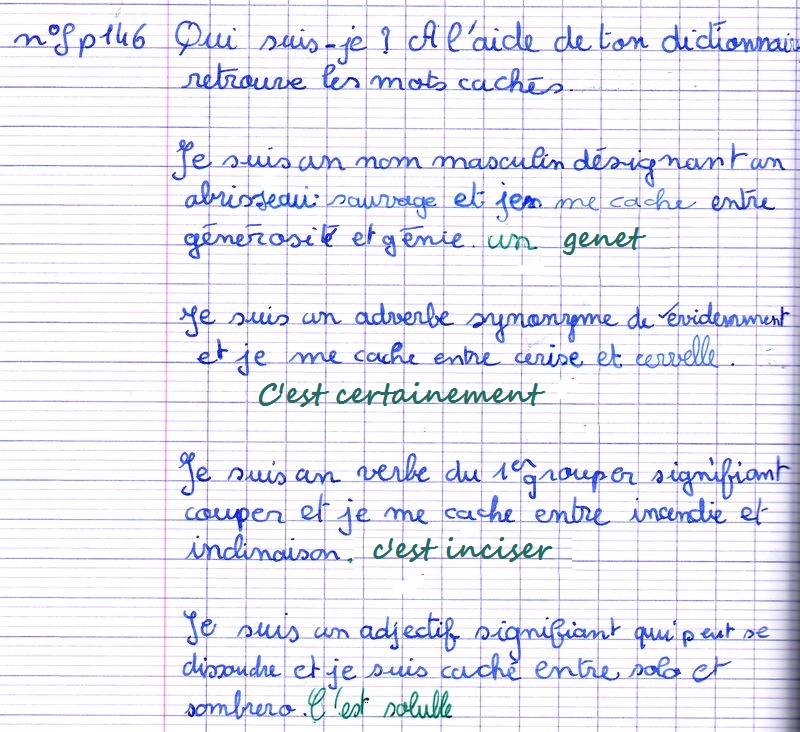 n°8 p146 Qui suis-je ? A l'aide de ton dictionnaire
retrouve les mots cachés.
Je suis un nom masculin désignant un
abrisseau sauvage et je me cache entre
générosité et génie. un genet
Je suis un adverbe synonyme de évidemment
et je me cache entre cerise et cervelle.
C'est certainement
Je suis un verbe du 1er grouper signifiant
couper et je me cache entre incendie et
inclinaison. c'est inciser
Je suis un adjectif signifiant qui peut se
dissoudre et je suis caché entre solo et
sombrero. C'est soluble